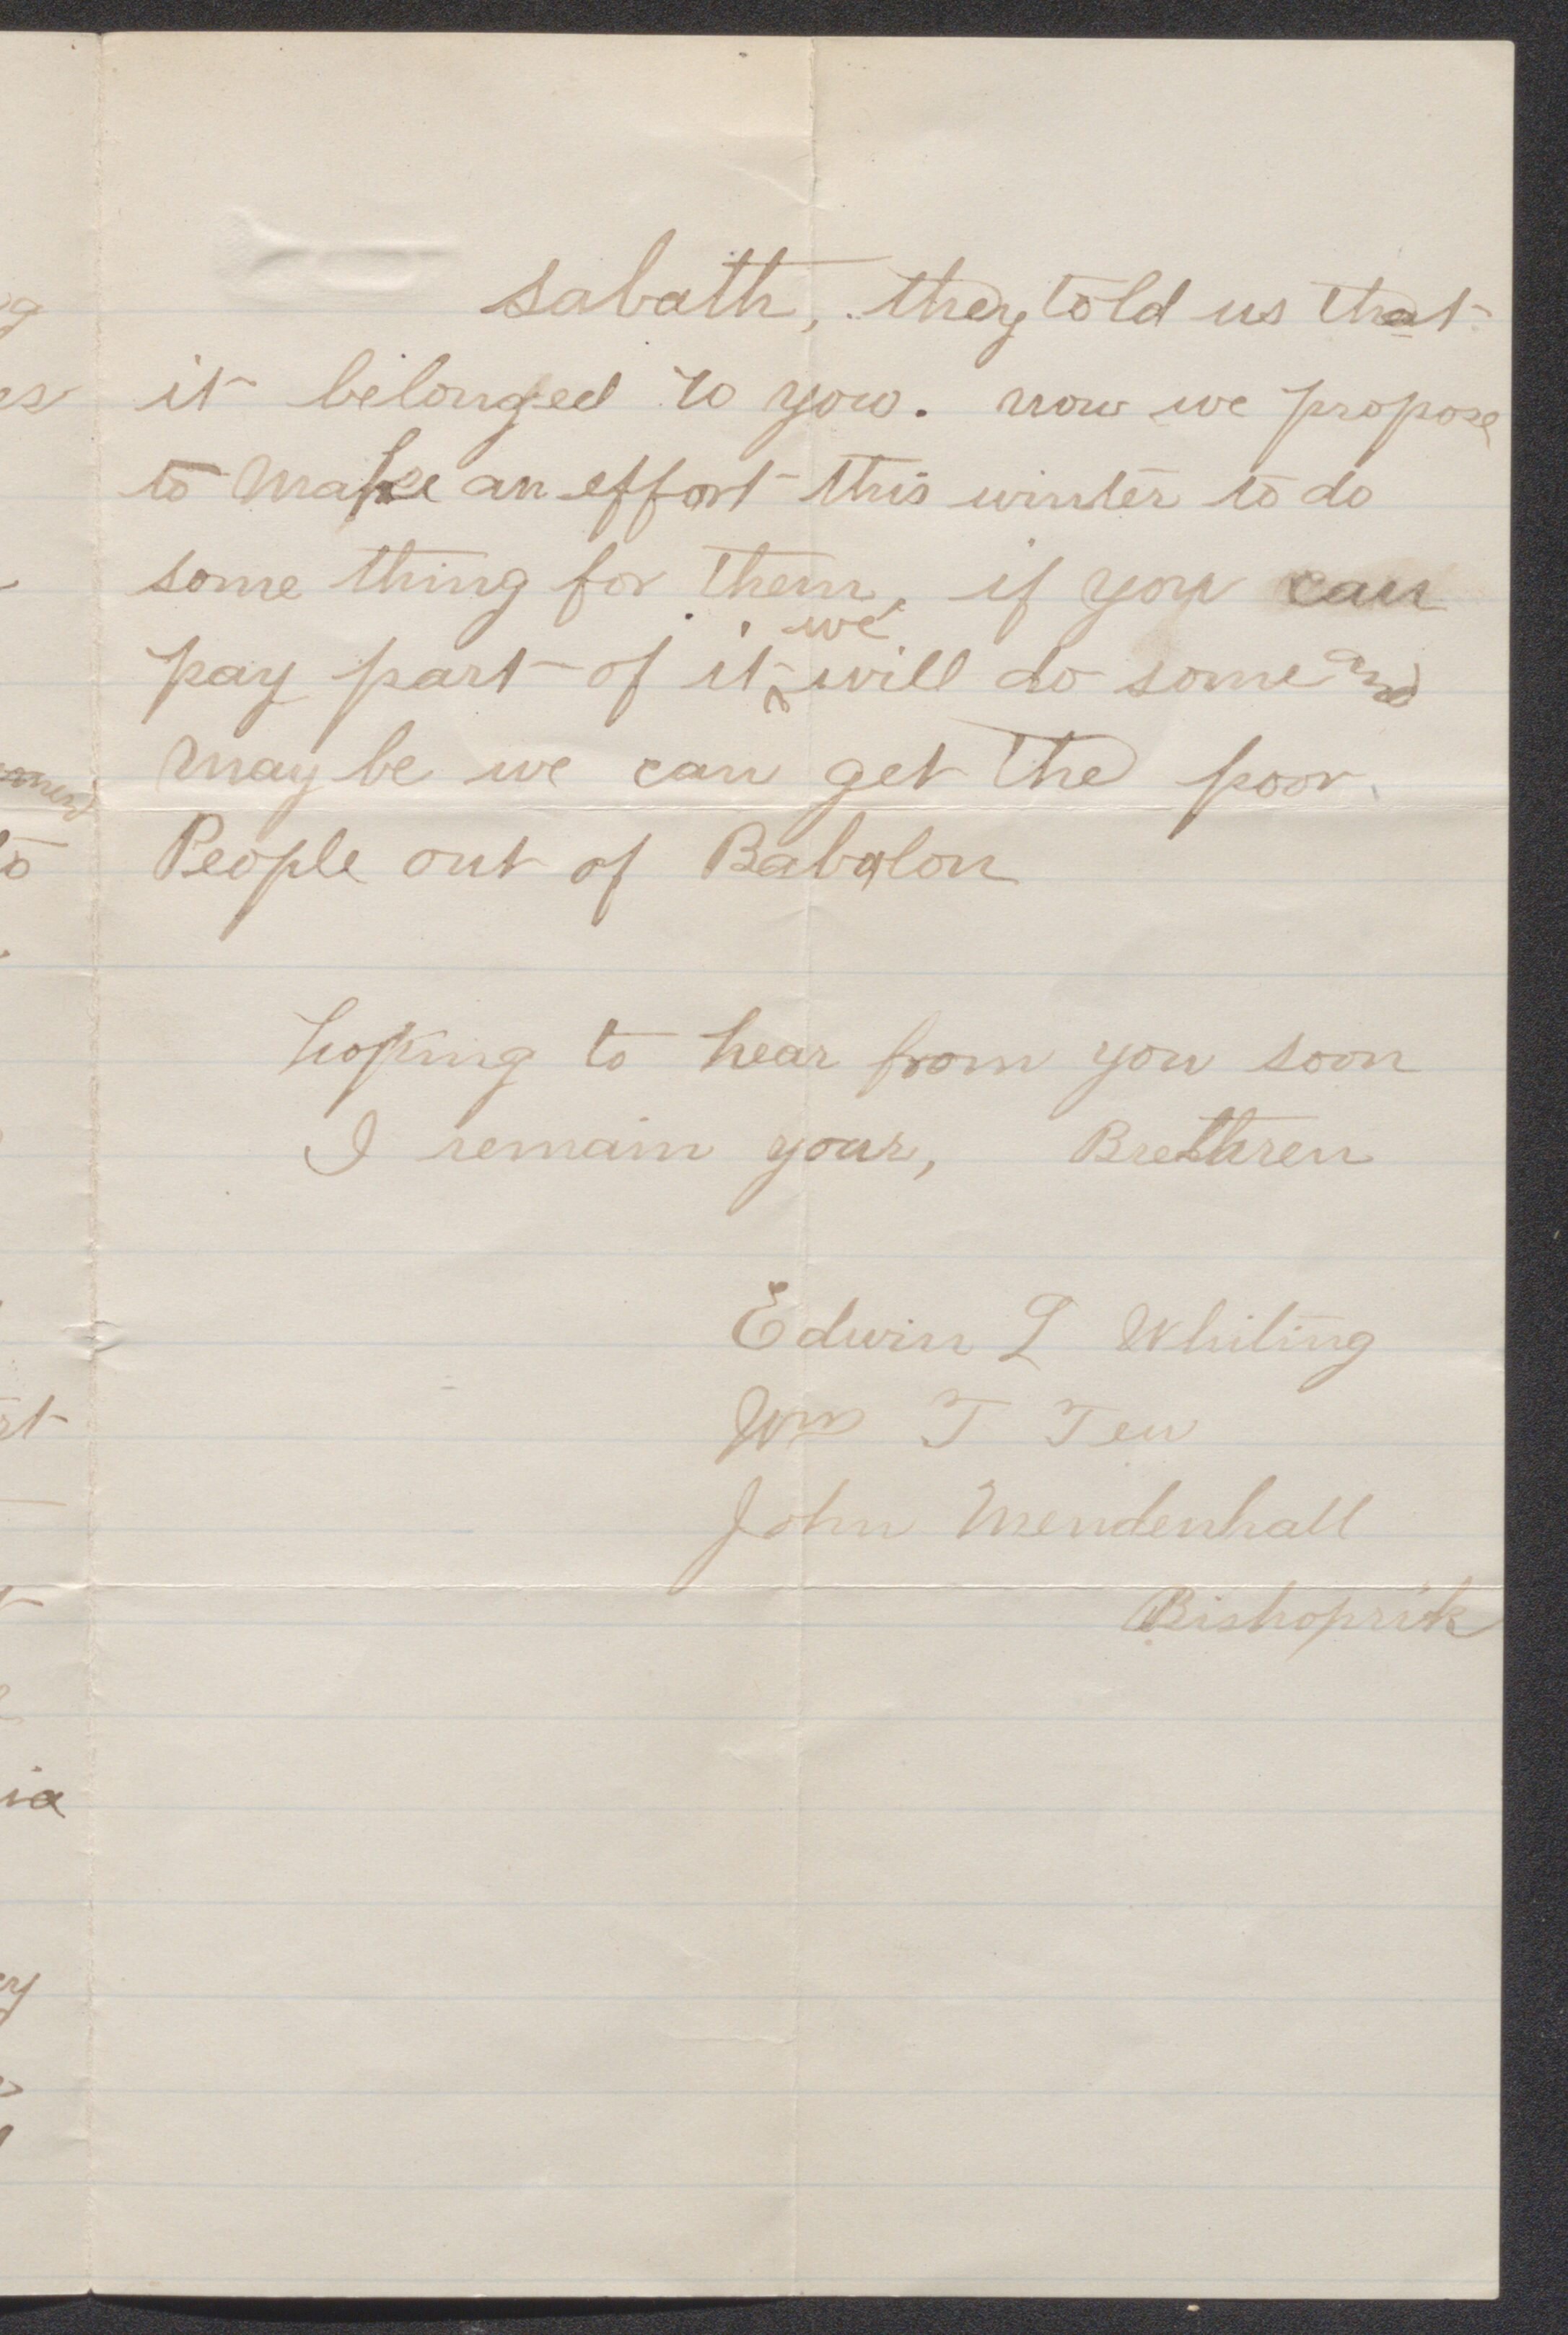 sabath, they told us that
it belonged to you. now we propose
to make an effort this winter to do
some thing for them, if you can
pay part of it we will do some and
may be we can get the poor
People out of Babalon
hoping to hear from you soon
I remain your, Brethren
Edwin L Whiting
Wm T Tew
John Mendenhall
Bishoprik